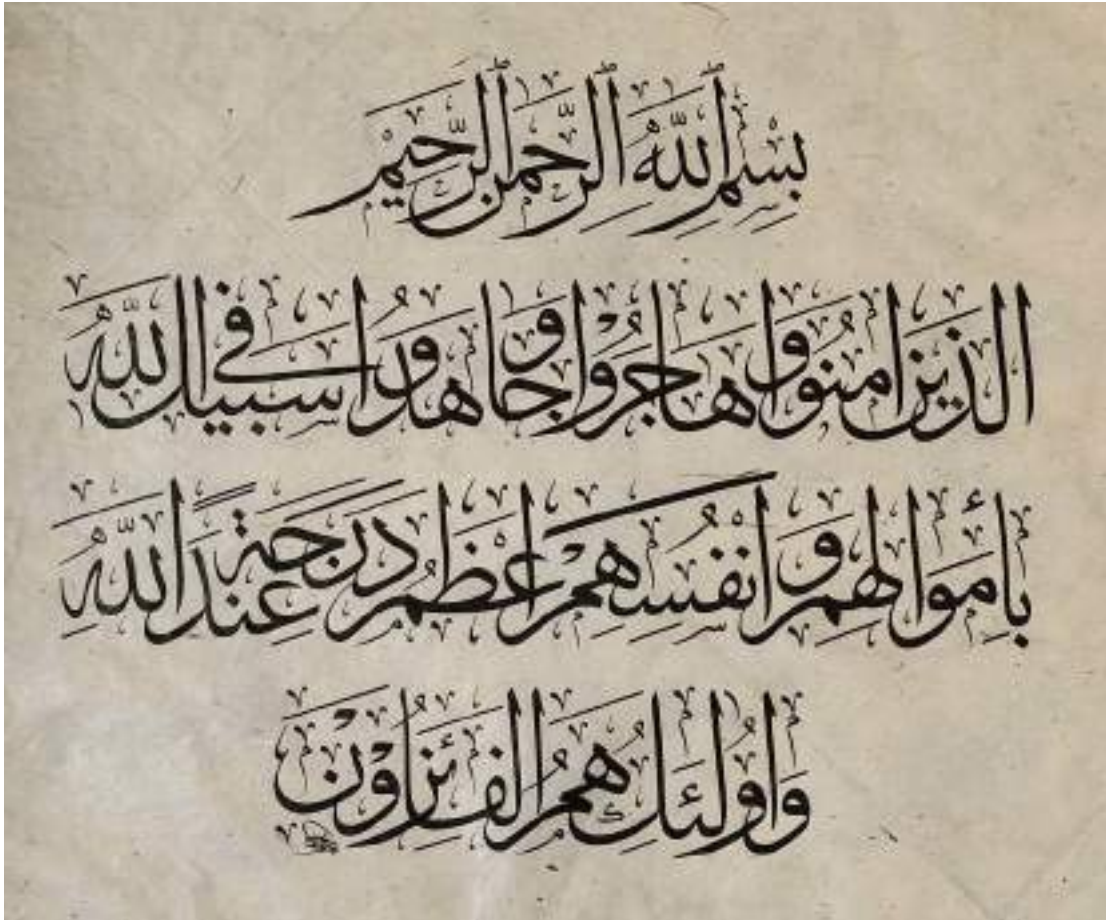 بِسْمِ اللّٰهِ الرَّحْمٰنِ الرَّحِيْمِ
الذين امنوا وهاجروا وجاهدوا في سبيل اللّٰهِ
بأموالهم وانفسهم اعظم درجةً عند اللّٰهِ
وأولئك هم الفائزون